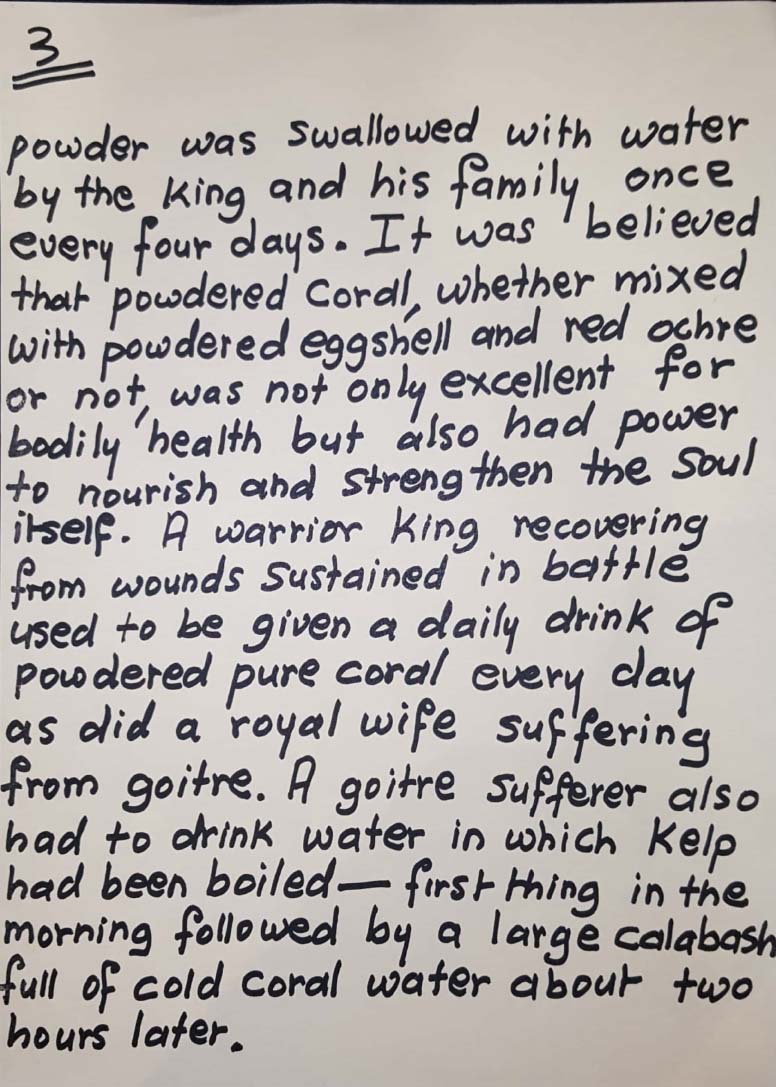 3
powder was swallowed with water
by the King and his family once
every four days. It was believed
that powdered coral, whether mixed
with powdered eggshell and red ochre
or not, was not only excellent for
bodily health but also had power
to nourish and strengthen the soul
itself. A warrior King recovering
from wounds sustained in battle
used to be given a daily drink of
powdered pure coral every day
as did a royal wife suffering
from goitre. A goitre sufferer also
had to drink water in which Kelp
had been boiled — first thing in the
morning followed by a large calabash
full of cold coral water about two
hours later.